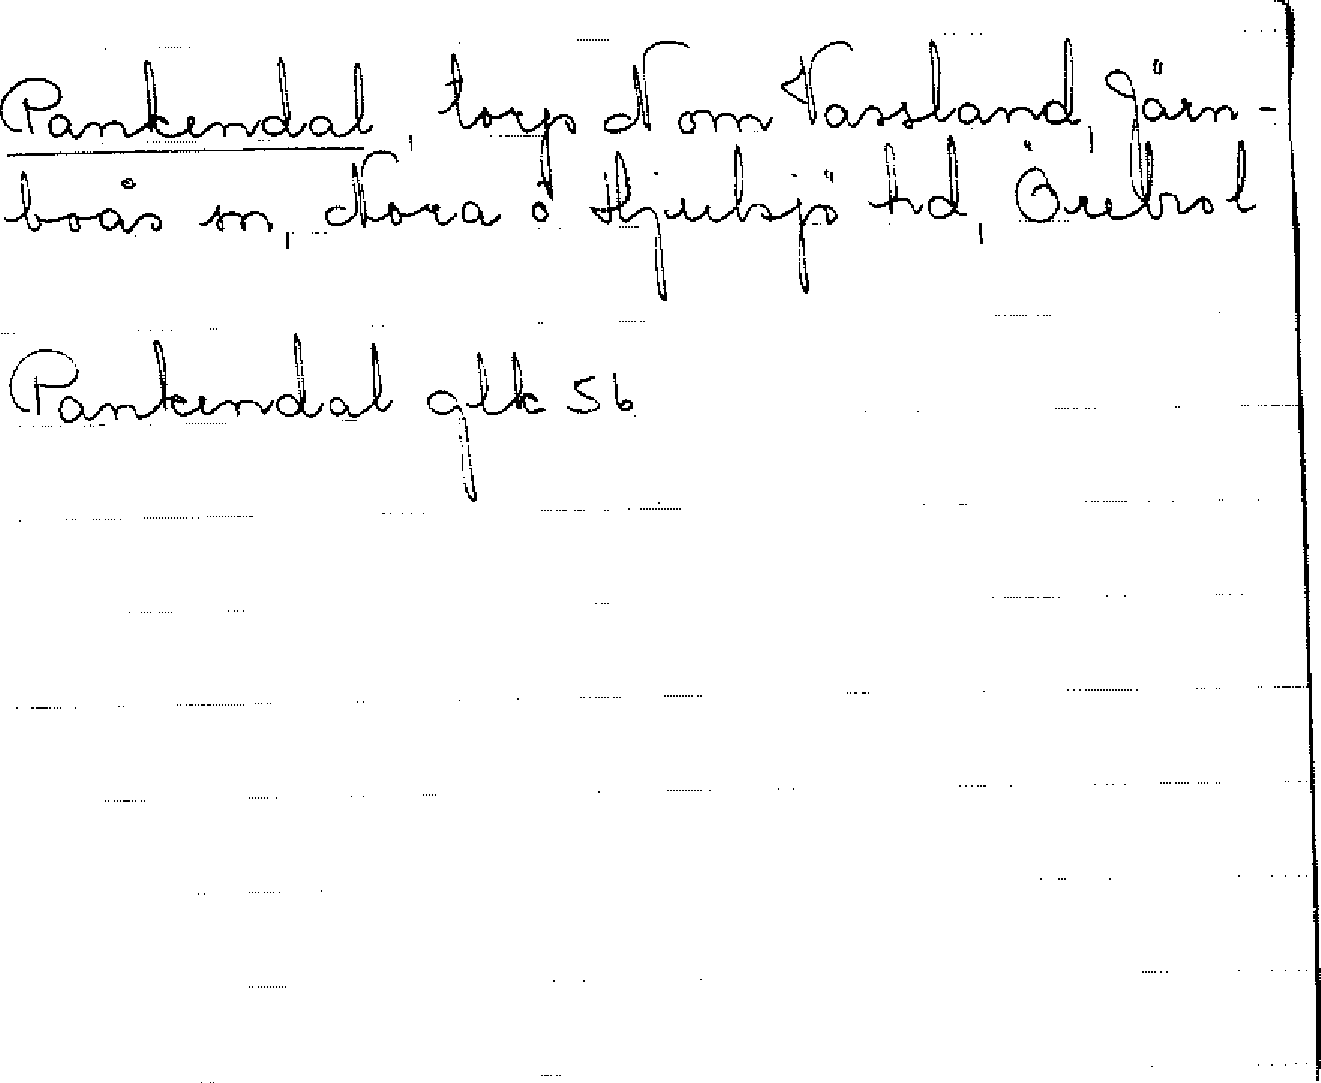 Pankendal, torp N om Vassland, Järn-
boås sn, Nora o Hjulsjö hd, Örebro l
Pankendal glk 56